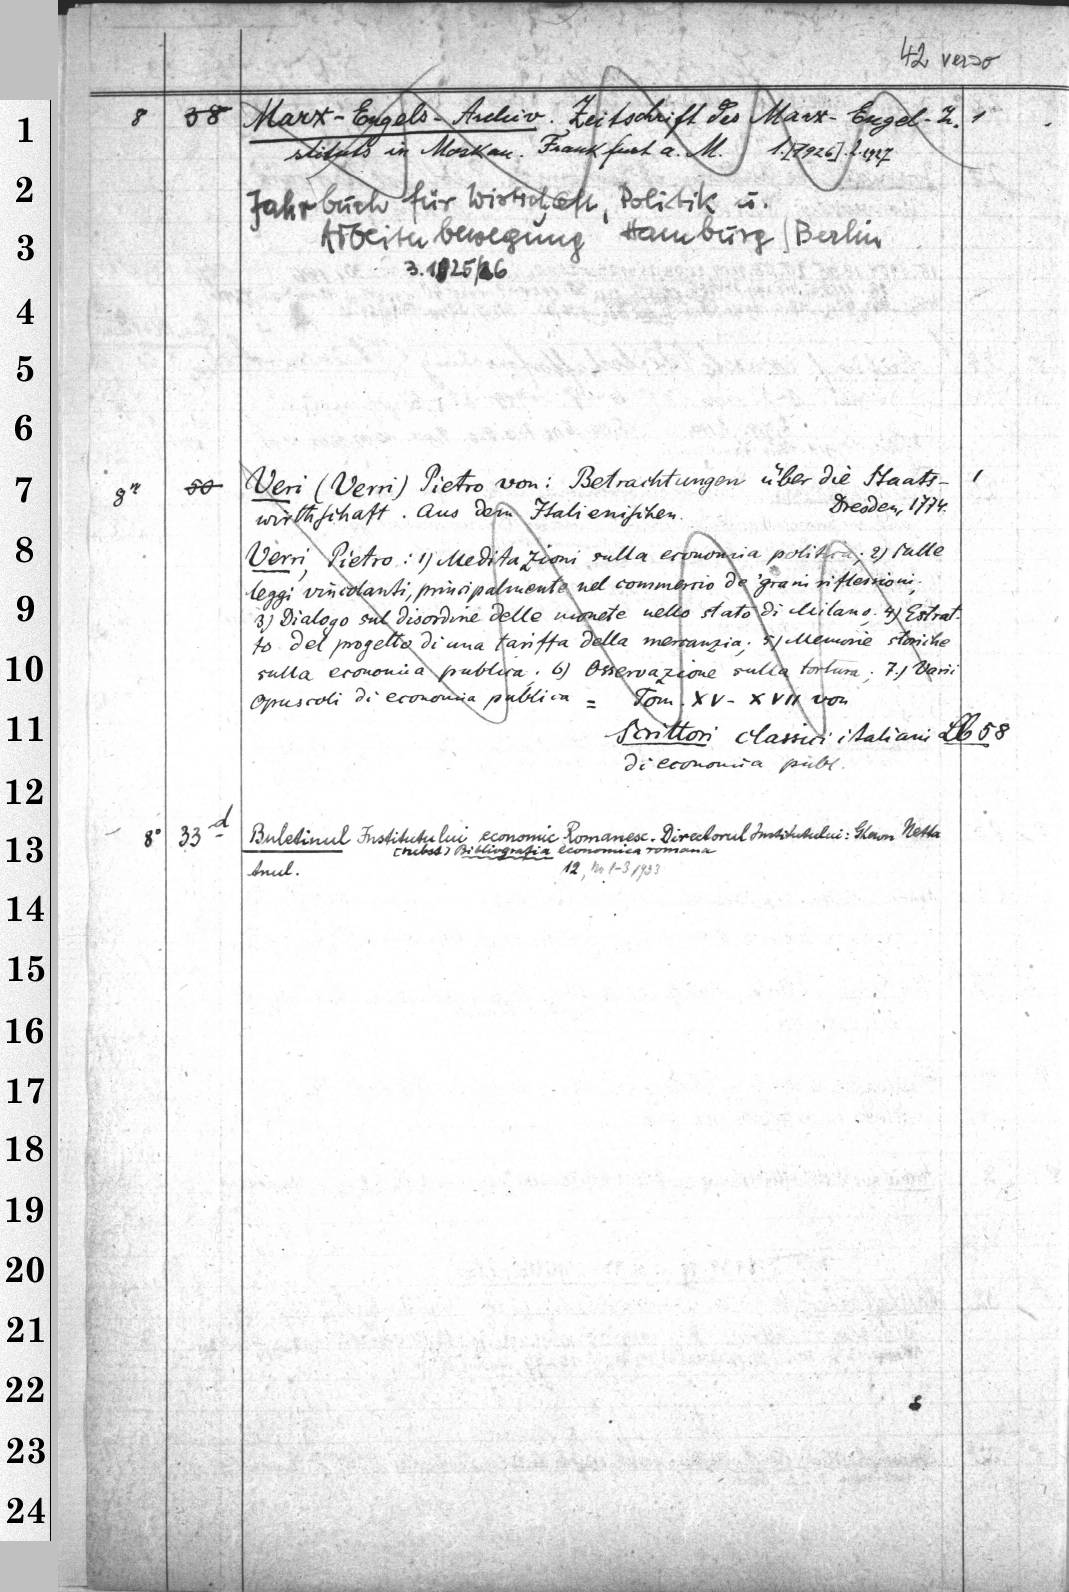 42 verso
8 38 Marx-Engels-Archiv. Zeitschrift des Marx-Engel-In. 1
stituts in Moskau. Frankfurt a. M. 1.[1926].2.1927
Jahrbuch für Wirtschaft, Politik u.
Arbeiterbewegung Hamburg/Berlin
3.1925/26
8º 50 Veri (Verri) Pietro von: Betrachtungen über die Staats- 1
wirthschaft. Aus dem Italienischen. Dresden, 1774.
Verri, Pietro: 1) Meditazioni sulla economia politica; 2) Sulle
leggi vincolanti, principalmente nel commercio de' grani riflessioni;
3) Dialogo sul disordine delle monete nello stato di Milano; 4) Estrat-
to del progetto di una tariffa della mercanzia; 5) Memorie storiche
sulla economia publica; 6) Osservazione sulla tortura; 7.) Varii
opuscoli di economia publica = Tom. XV-XVII von
Scrittori classici italiani Lb 58
di economia publ.
8º 33 d Buletinul Institutului economic Romanesc. Directorul Institutului: Netta
(subst) Bibliografia economica romana
Anul. 12, Nr 1-3 1933
1
2
3
4
5
6
7
8
9
10
11
12
13
14
15
16
17
18
19
20
21
22
23
24